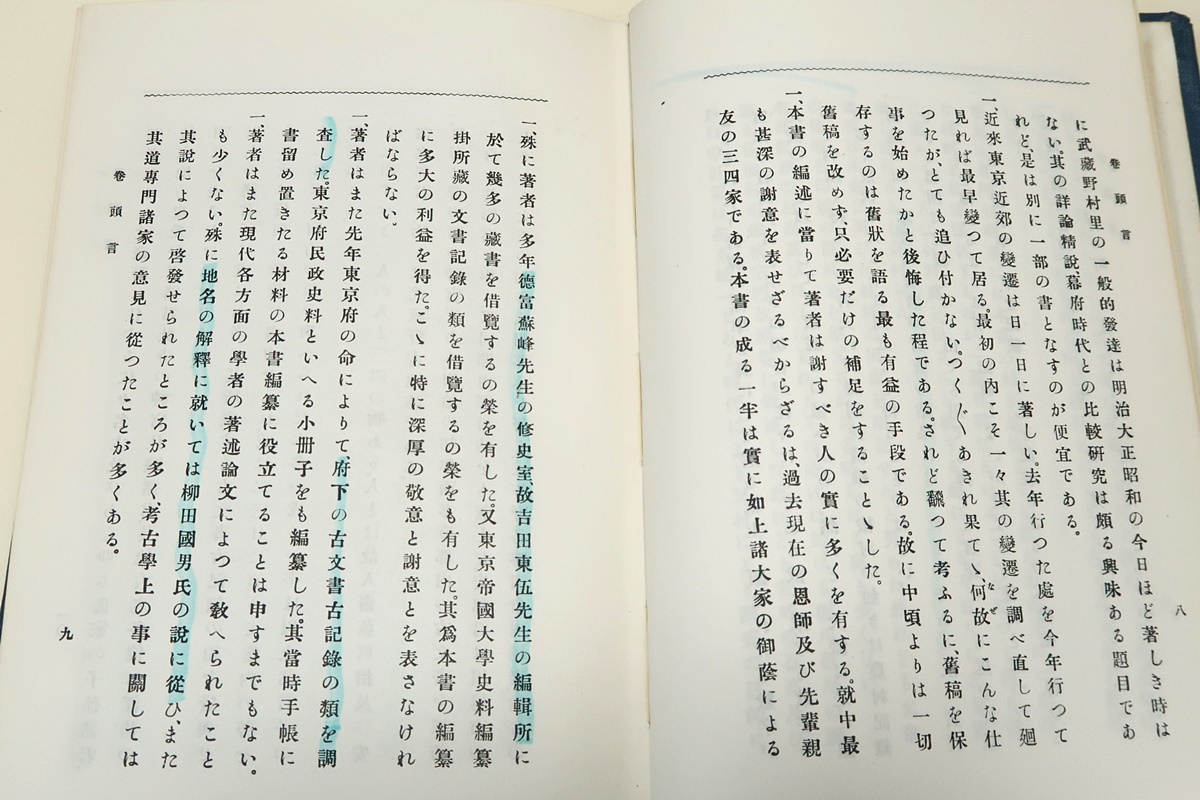 卷頭言
八
に武藏野村里の一般的發達は明治大正昭和の今日ほど著しき時は
ない。其の詳論精說、幕府時代との比較硏究は頗る興味ある題目であ
れど、是は別に一部の書となすのが便宜である。
一、近來東京近郊の變遷は日一日に著しい。去年行つた處を今年行つて
見れば最早變つて居る。最初の內こそ一々其の變遷を調べ直して廻
つたが、とても追ひ付かない。つく〴〵あきれ果てヽ、何故にこんな仕
事を始めたかと後悔した程である。されど飜つて考ふるに、舊稿を保
存するのは舊狀を語る最も有益の手段である。故に中頃よりは一切
舊稿を改めず、只必要だけの補足をすることヽした。
一、本書の編述に當りて著者は謝すべき人の實に多くを有する。就中最
も甚深の謝意を表せざるべからざるは、過去現在の恩師及び先輩親
友の三四家である。本書の成る一半は實に如上諸大家の御蔭による
一、殊に著者は多年德富蘇峰先生の修史室、故吉田東伍先生の編輯所に
於て幾多の藏書を借覽するの榮を有した。又東京帝國大學史料編纂
掛所藏の文書記錄の類を借覽するの榮をも有した。其爲本書の編纂
に多大の利益を得た。こヽに特に深厚の敬意と謝意とを表さなけれ
ばならない。
一、著者はまた先年東京府の命によりて、府下の古文書古記錄の類を調
査した。東京府民政史料といへる小册子をも編纂した。其當時手帳に
書留め置きたる材料の本書編纂に役立てることは申すまでもない。
一、著者はまた現代各方面の學者の著述論文によつて敎へられたこと
も少くない。殊に地名の解釋に就いては柳田國男氏の說に從ひ、また
其說によつて啓發せられたところが多く、考古學上の事に關しては
其道專門諸家の意見に從つたことが多くある。
卷頭言
九